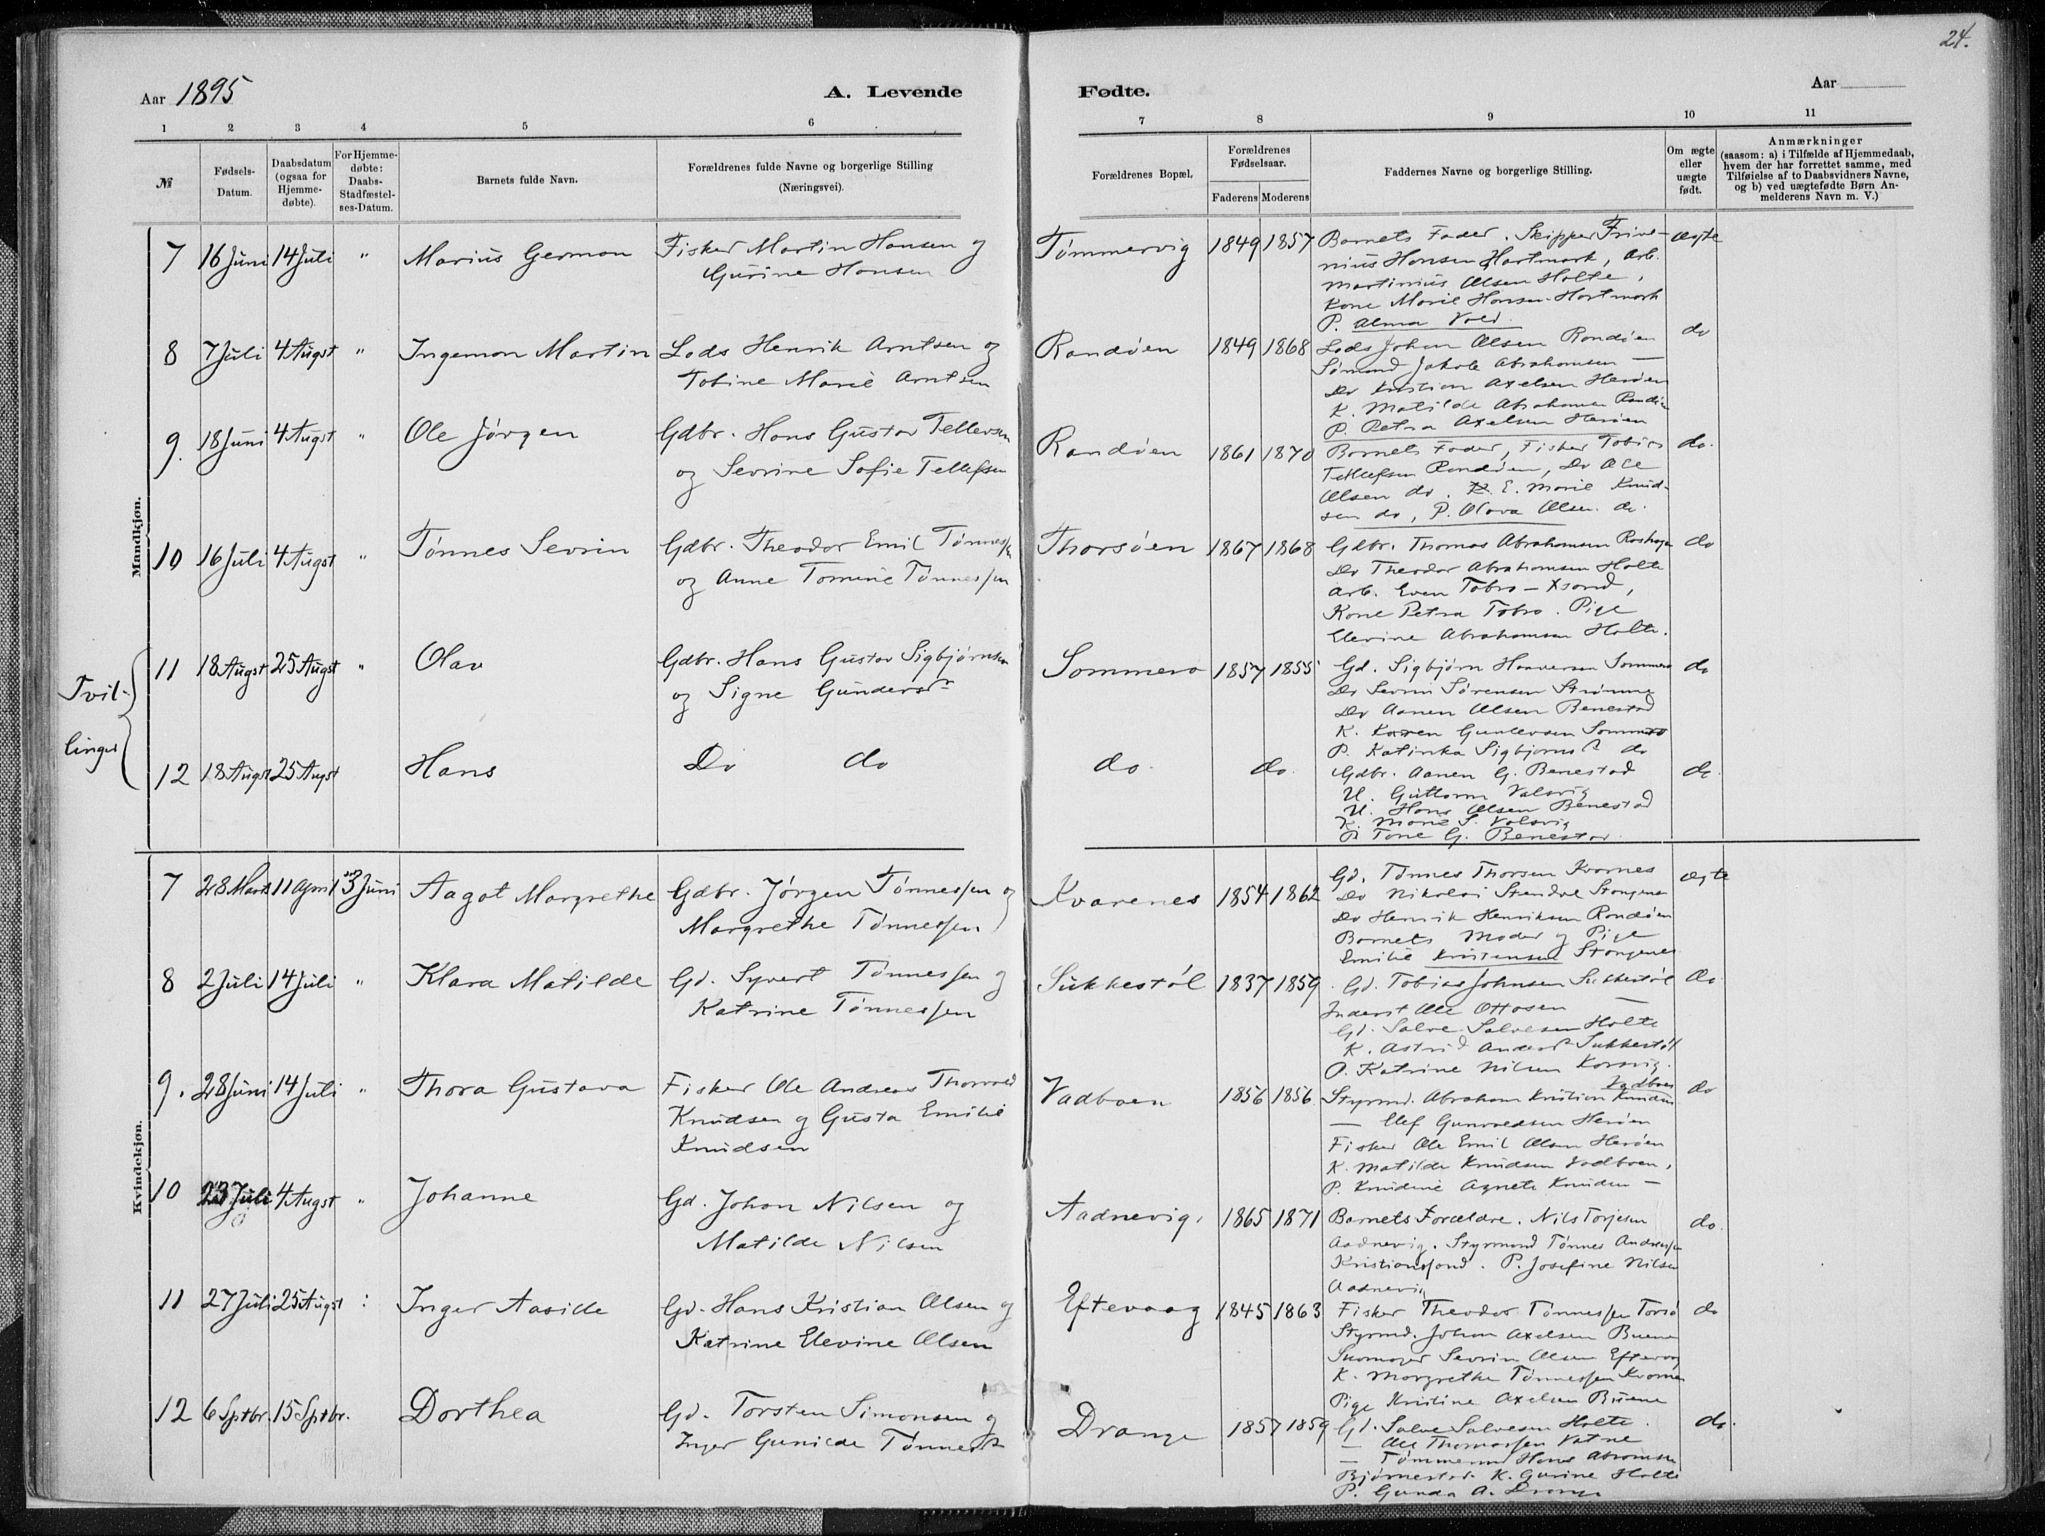 24.
Aar 1895
A. Levende
Fødte.
Aar
1 2 3 4 5 6 7 8 9 10 11
№
Fødsels-
Datum.
Daabsdatum
(ogsaa for
Hjemme-
døbte).
For Hjemme-
døbte:
Daabs-
Stadfæstel-
ses-Datum.
Barnets fulde Navn.
Forældrenes fulde Navne og borgerlige Stilling
(Næringsvei).
Forældrenes Bopæl.
Forældrenes
Fødselsaar.
Faderens Moderens
Faddernes Navne og borgerlige Stilling.
Om ægte
eller
uægte
født.
Anmærkninger
(saasom: a) i Tilfælde af Hjemmedaab,
hvem der har forrettet samme, med
Tilføielse af to Daabsvidners Navne,
og b) ved uægtefødte Børn An-
melderens Navn m. V.)
Mandkjøn.
7 16 Juni 14 Juli " Marius German
Fisker Martin Hansen og
Gurine Hansen
Tømmervig 1849 1857
Barnets Fader. Skipper
Hansen Hartmark, Arb.
Martinius Olsen Holte,
Kone Marie Hansen Hartmark
P. Alma Vold.
ægte
8 7 Juli 4 Augst " Ingeman Martin
Lods Henrik Arntsen og
Tobine Marie Arntsen
Randøen 1849 1868
Lods Johan Olsen Randøen
Sømand Jakob Abrahamsen —
Do Kristian Axelsen Herøen
K. Matilde Abrahamsen Randøen
P. Petra Axelsen Herøen
do
9. 18 Juni 4 Augst " Ole Jørgen
Gdbr. Hans Gustav Tellefsen
og Sevrine Sofie Tellefsen
Randøen 1861 1870
Barnets Fader, Fisker Tobias
Tellefsen Randøen, Do Ole
Olsen do. E. Marie Knud-
sen do, P. Olava Olsen do.
do.
10 16 Juli 4 Augst " Tønnes Sevrin
Gdbr. Theodor Emil Tønnessen
og Anne Tomine Tønnessen
Thorsøen 1867 1868
Gdbr. Thomas Abrahamsen
Do Theodor Abrahamsen Holte
Arb. Even Tobro — Xsand,
Kone Petra Tobro. Pige
Elevine Abrahamsen Holte.
do
Tvil-
linger
11 18 Augst 25 Augst " Olav
Gdbr. Hans Gustav Sigbjørnsen
og Signe Gundersd
Sommero 1857 1855
Gd. Sigbjørn Haaversen Sommero
Do Sevrin Sørensen Strømme
Do Aanen Olsen Benestad
K. Karen Gundersen Sommero
P. Katinka Sigbjørns do
do
12 18 Augst 25 Augst Hans
Do do
do. do.
Gdbr. Aanen G. Benestad
U. Guttorm Valsvig
U. Hans Olsen Benestad
K. Marie S. Valsvig
P. Tone G. Benestad.
do.
Kvindekjøn.
7 28 Marts 11 April 3 Juni Aagot Margrethe
Gdbr. Jørgen Tønnessen og
Margrethe Tønnessen
Kvarenes 1854 1862
Gd. Tønnes Thorsen Kvarnes
Do Nikolai Stangenes
Do Henrik Henriksen Randøen
Barnets Moder og Pige
Emilie Kristensen Stangenes
ægte
8 2 Juli 14 Juli " Klara Matilde
Gd. Syvert Tønnessen og
Katrine Tønnessen
Sukkestøl 1837 1859
Gd. Tobias Johnsen Sukkestøl
Inderst Ole Ottosen —
Gd. Salve Salvesen Holte
K. Astrid Anders Sukkestøl
P. Katrine Nilsen Korsvig.
do.
9. 28 Juni 14 Juli " Thora Gustava
Fisker Ole Andreas Thorvald
Knudsen og Gusta Emilie
Knudsen
Vadboen 1856 1856
Vadboen
Styrmd. Abraham Kristian Knudsen
— Olef Gunvaldsen Herøen
Fisker Ole Emil Olsen Herøen
K. Matilde Knudsen Vadboen,
P. Knudine Agnete Knudsen —
do
10 23 Juli 4 Augst " Johanne
Gd. Johan Nilsen og
Matilde Nilsen
Aadnevig. 1865 1871
Barnets Forældre. Nils Torjesen
Aadnevig. Styrmand Tønnes Andreassen
Kristianssand. P. Josefine Nilsen
Aadnevig
do.
11 27 Juli 25 Augst : Inger Aasilde
Gd. Hans Kristian Olsen og
Katrine Elevine Olsen
Eftevaag 1845 1863
Fisker Theodor Tønnessen Torsø
Styrmd. Johan Axelsen Buene
Skomager Sevrin Olsen Eftevaag
K. Margrethe Tønnessen Kvarnes
Pige Kristine Axelsen Buene
do
12 6 Sptbr. 15 Sptbr. Dorthea
Gd. Torsten Simonsen og
Inger Gunilde Tønnesd
Drange 1857 1859
Gd. Salve Salvesen Holte.
— Ole Thomassen Vatne
— Tømmermd Hans
Bjørnestad K. Gurine Holte
P. Gunda A. Drange
do.